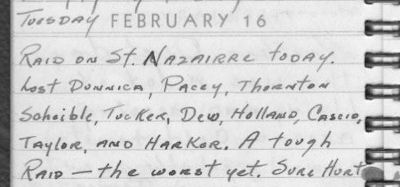 Tuesday FEBRUARY 16
Raid on St. Nazairre today.
Lost Dunnica, Pacey, Thornton
Scheible, Tucker, Dew, Holland, Cascio,
Taylor, and Harker. A tough
Raid — the worst yet. Sure Hurt